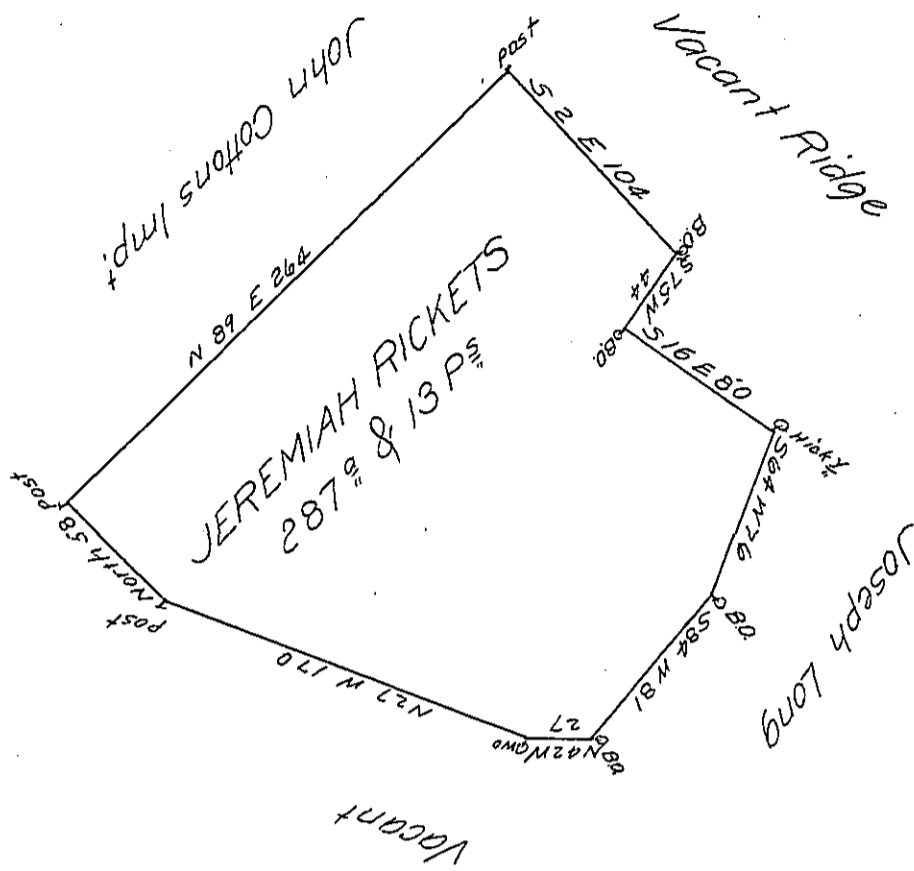 John Cottons Imp.t
Vacant Ridge
post
S 2 E 104
B.O.
S 75 W
44
B.O.
S 16 E 80
Hick.y
S 64 W 76
B.O.
S 84 W 81
B.O.
N 42 W
27
W.O.
N 27 W 170
post
North 58
post
N 89 E 264
JEREMIAH RICKETS
287 a & 13 Ps
Joseph Long
Vacant